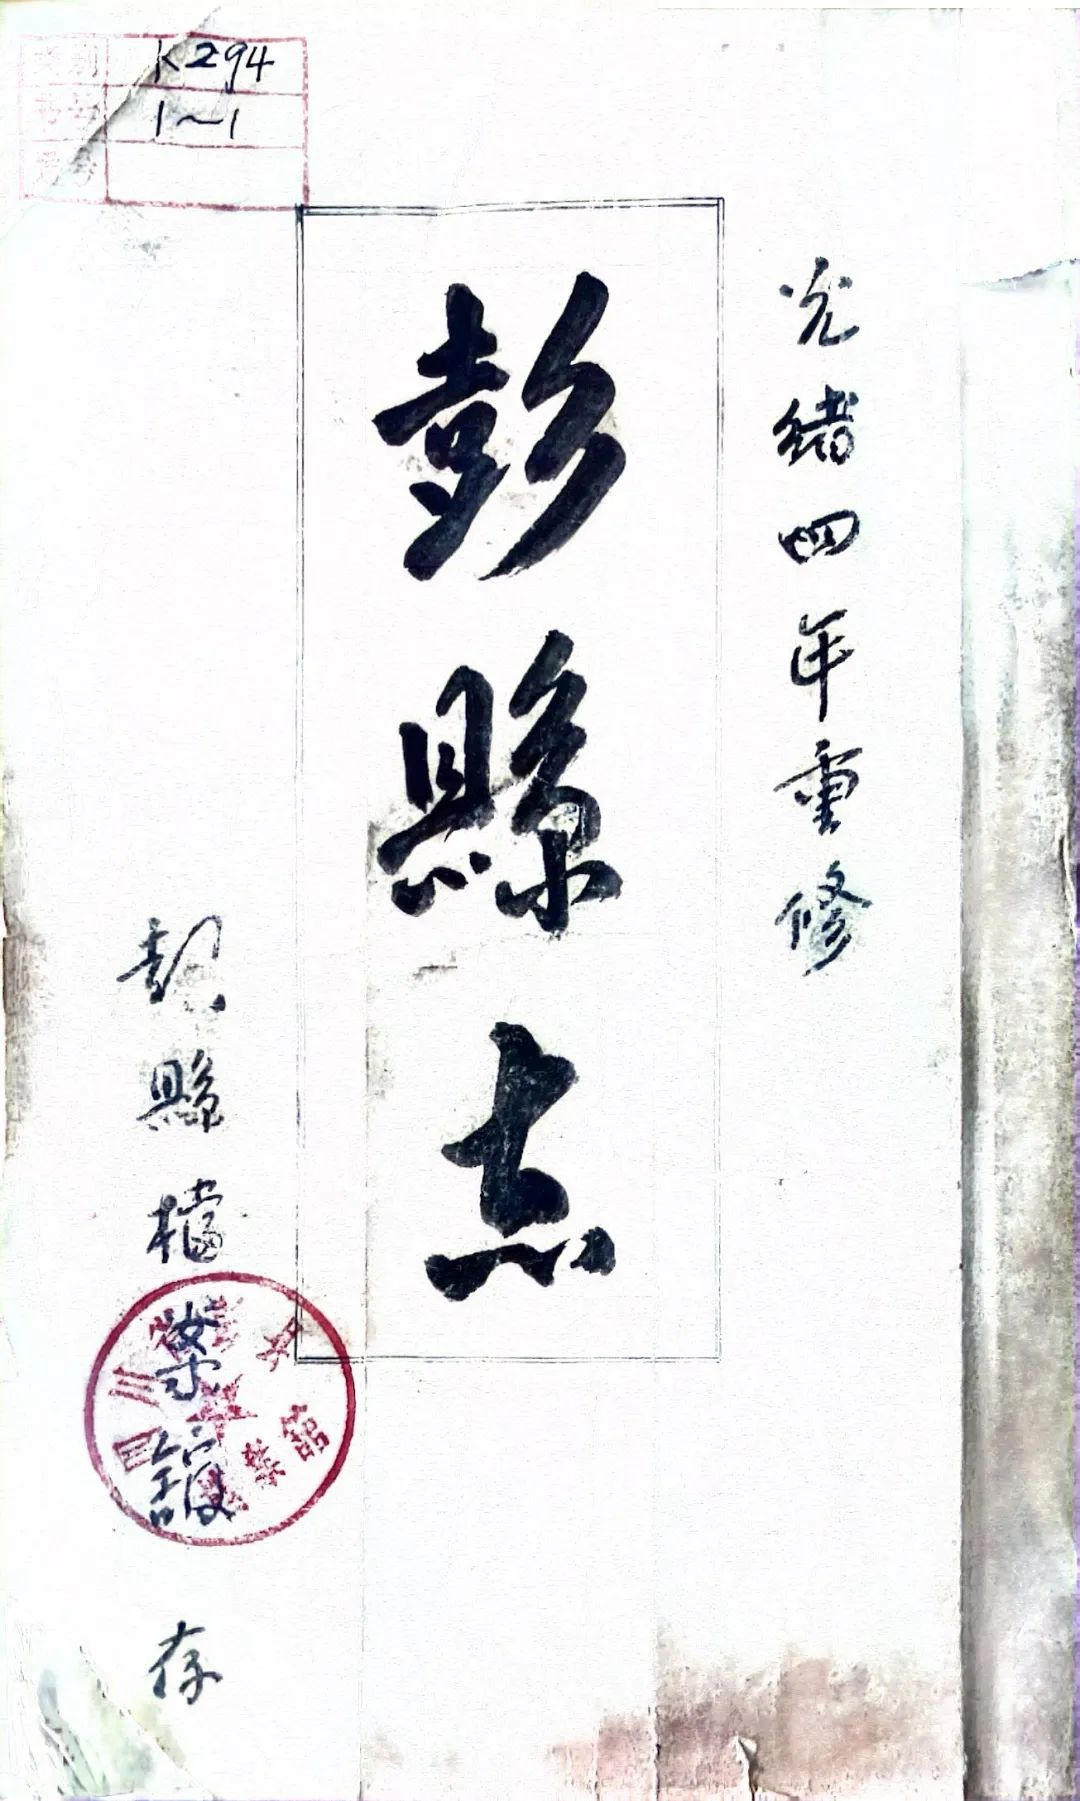 K294
1～1
光緒四年重修
彭縣志
彭縣檔案館存